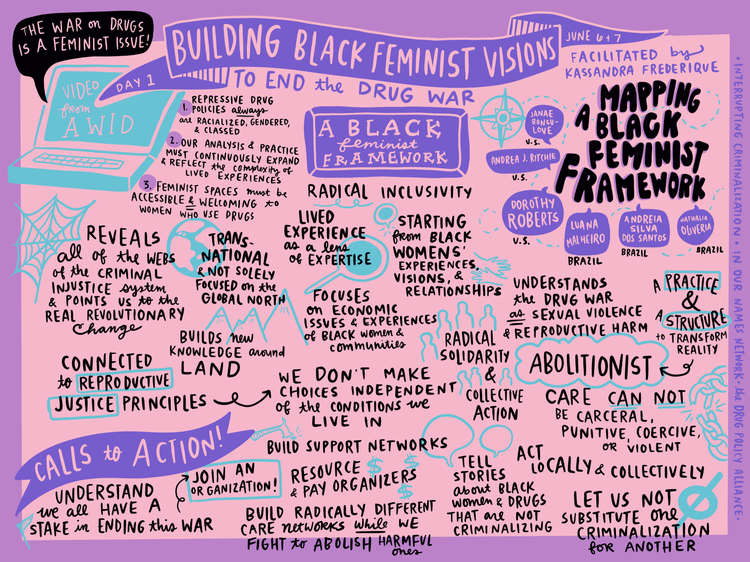 THE WAR on DRUGS
IS A FEMINIST ISSUE!
BUILDING BLACK FEMINIST VISIONS
JUNE 6+7
DAY 1
TO END the DRUG WAR
FACILITATED by
KASSANDRA FREDERIQUE
VIDEO
from
AWID
1. REPRESSIVE DRUG
POLICIES always
are RACIALIZED, GENDERED,
& CLASSED
2. OUR ANALYSIS & PRACTICE
MUST CONTINUOUSLY EXPAND
& REFLECT the COMPLEXITY of
LIVED EXPERIENCES
3. FEMINIST SPACES must be
ACCESSIBLE & WELCOMING to
WOMEN WHO USE DRUGS
A BLACK
feminist
FRAMEWORK
MAPPING
A BLACK
FEMINIST
FRAMEWORK
JANAE
BONSU-
LOVE
U.S.
ANDREA J. RITCHIE
U.S.
DOROTHY
ROBERTS
U.S.
LUANA
MALHEIRO
BRAZIL
ANDREIA
SILVA
DOS SANTOS
BRAZIL
NATHALIA
OLIVERIA
BRAZIL
RADICAL INCLUSIVITY
REVEALS
all of the WEBS
of the CRIMINAL
INJUSTICE system
& POINTS US to the
REAL REVOLUTIONARY
Change
TRANS-
NATIONAL
& NOT SOLELY
FOCUSED on the
GLOBAL NORTH
LIVED
EXPERIENCE
as a lens
of EXPERTISE
STARTING
from BLACK
WOMENS'
EXPERIENCES,
VISIONS, &
RELATIONSHIPS
FOCUSES
on ECONOMIC
ISSUES & EXPERIENCES
of BLACK women &
communities
UNDERSTANDS
the DRUG WAR
as SEXUAL VIOLENCE
& REPRODUCTIVE HARM
A PRACTICE
&
A STRUCTURE
to TRANSFORM
REALITY
BUILDS new
KNOWLEDGE around
LAND
RADICAL
SOLIDARITY
&
COLLECTIVE
ACTION
ABOLITIONIST
CONNECTED
to REPRODUCTIVE
JUSTICE PRINCIPLES
WE DON'T MAKE
CHOICES INDEPENDENT
of the CONDITIONS we
LIVE IN
CARE CAN NOT
BE CARCERAL,
PUNITIVE, COERCIVE,
or VIOLENT
CALLS to ACTION!
UNDERSTAND
we all HAVE A
STAKE in ENDING this WAR
JOIN AN
ORGANIZATION!
BUILD SUPPORT NETWORKS
RESOURCE
& PAY ORGANIZERS
BUILD RADICALLY DIFFERENT
CARE networks while WE
FIGHT to ABOLISH HARMFUL
ones
TELL
STORIES
about BLACK
women & DRUGS
THAT are NOT
CRIMINALIZING
ACT
LOCALLY & COLLECTIVELY
LET US NOT
SUBSTITUTE one
CRIMINALIZATION
for ANOTHER
• INTERRUPTING CRIMINALIZATION • IN OUR NAMES NETWORK • the DRUG POLICY ALLIANCE •